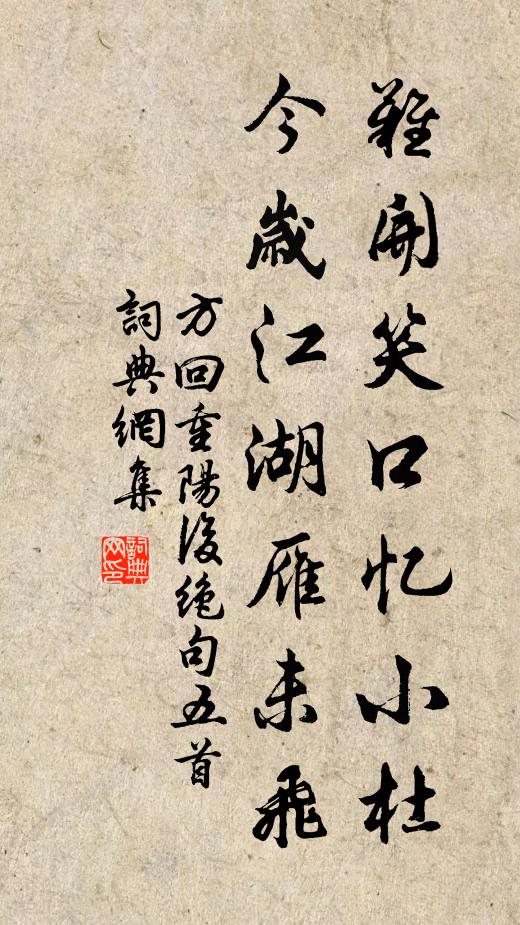 難開笑口忆小杜
今歲江湖雁未飛
方回重陽後絶句五首
詞典網集
詞典网印